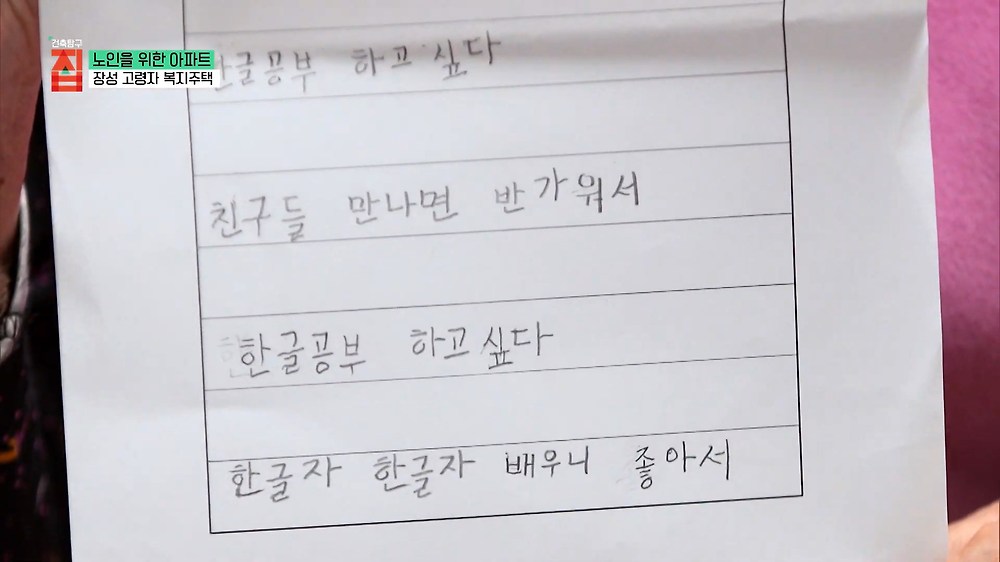 건축탐구
집
노인을 위한 아파트
장성 고령자 복지주택
한글공부 하고 싶다
친구들 만나면 반가워서
한글공부 하고 싶다
한글자 한글자 배우니 좋아서